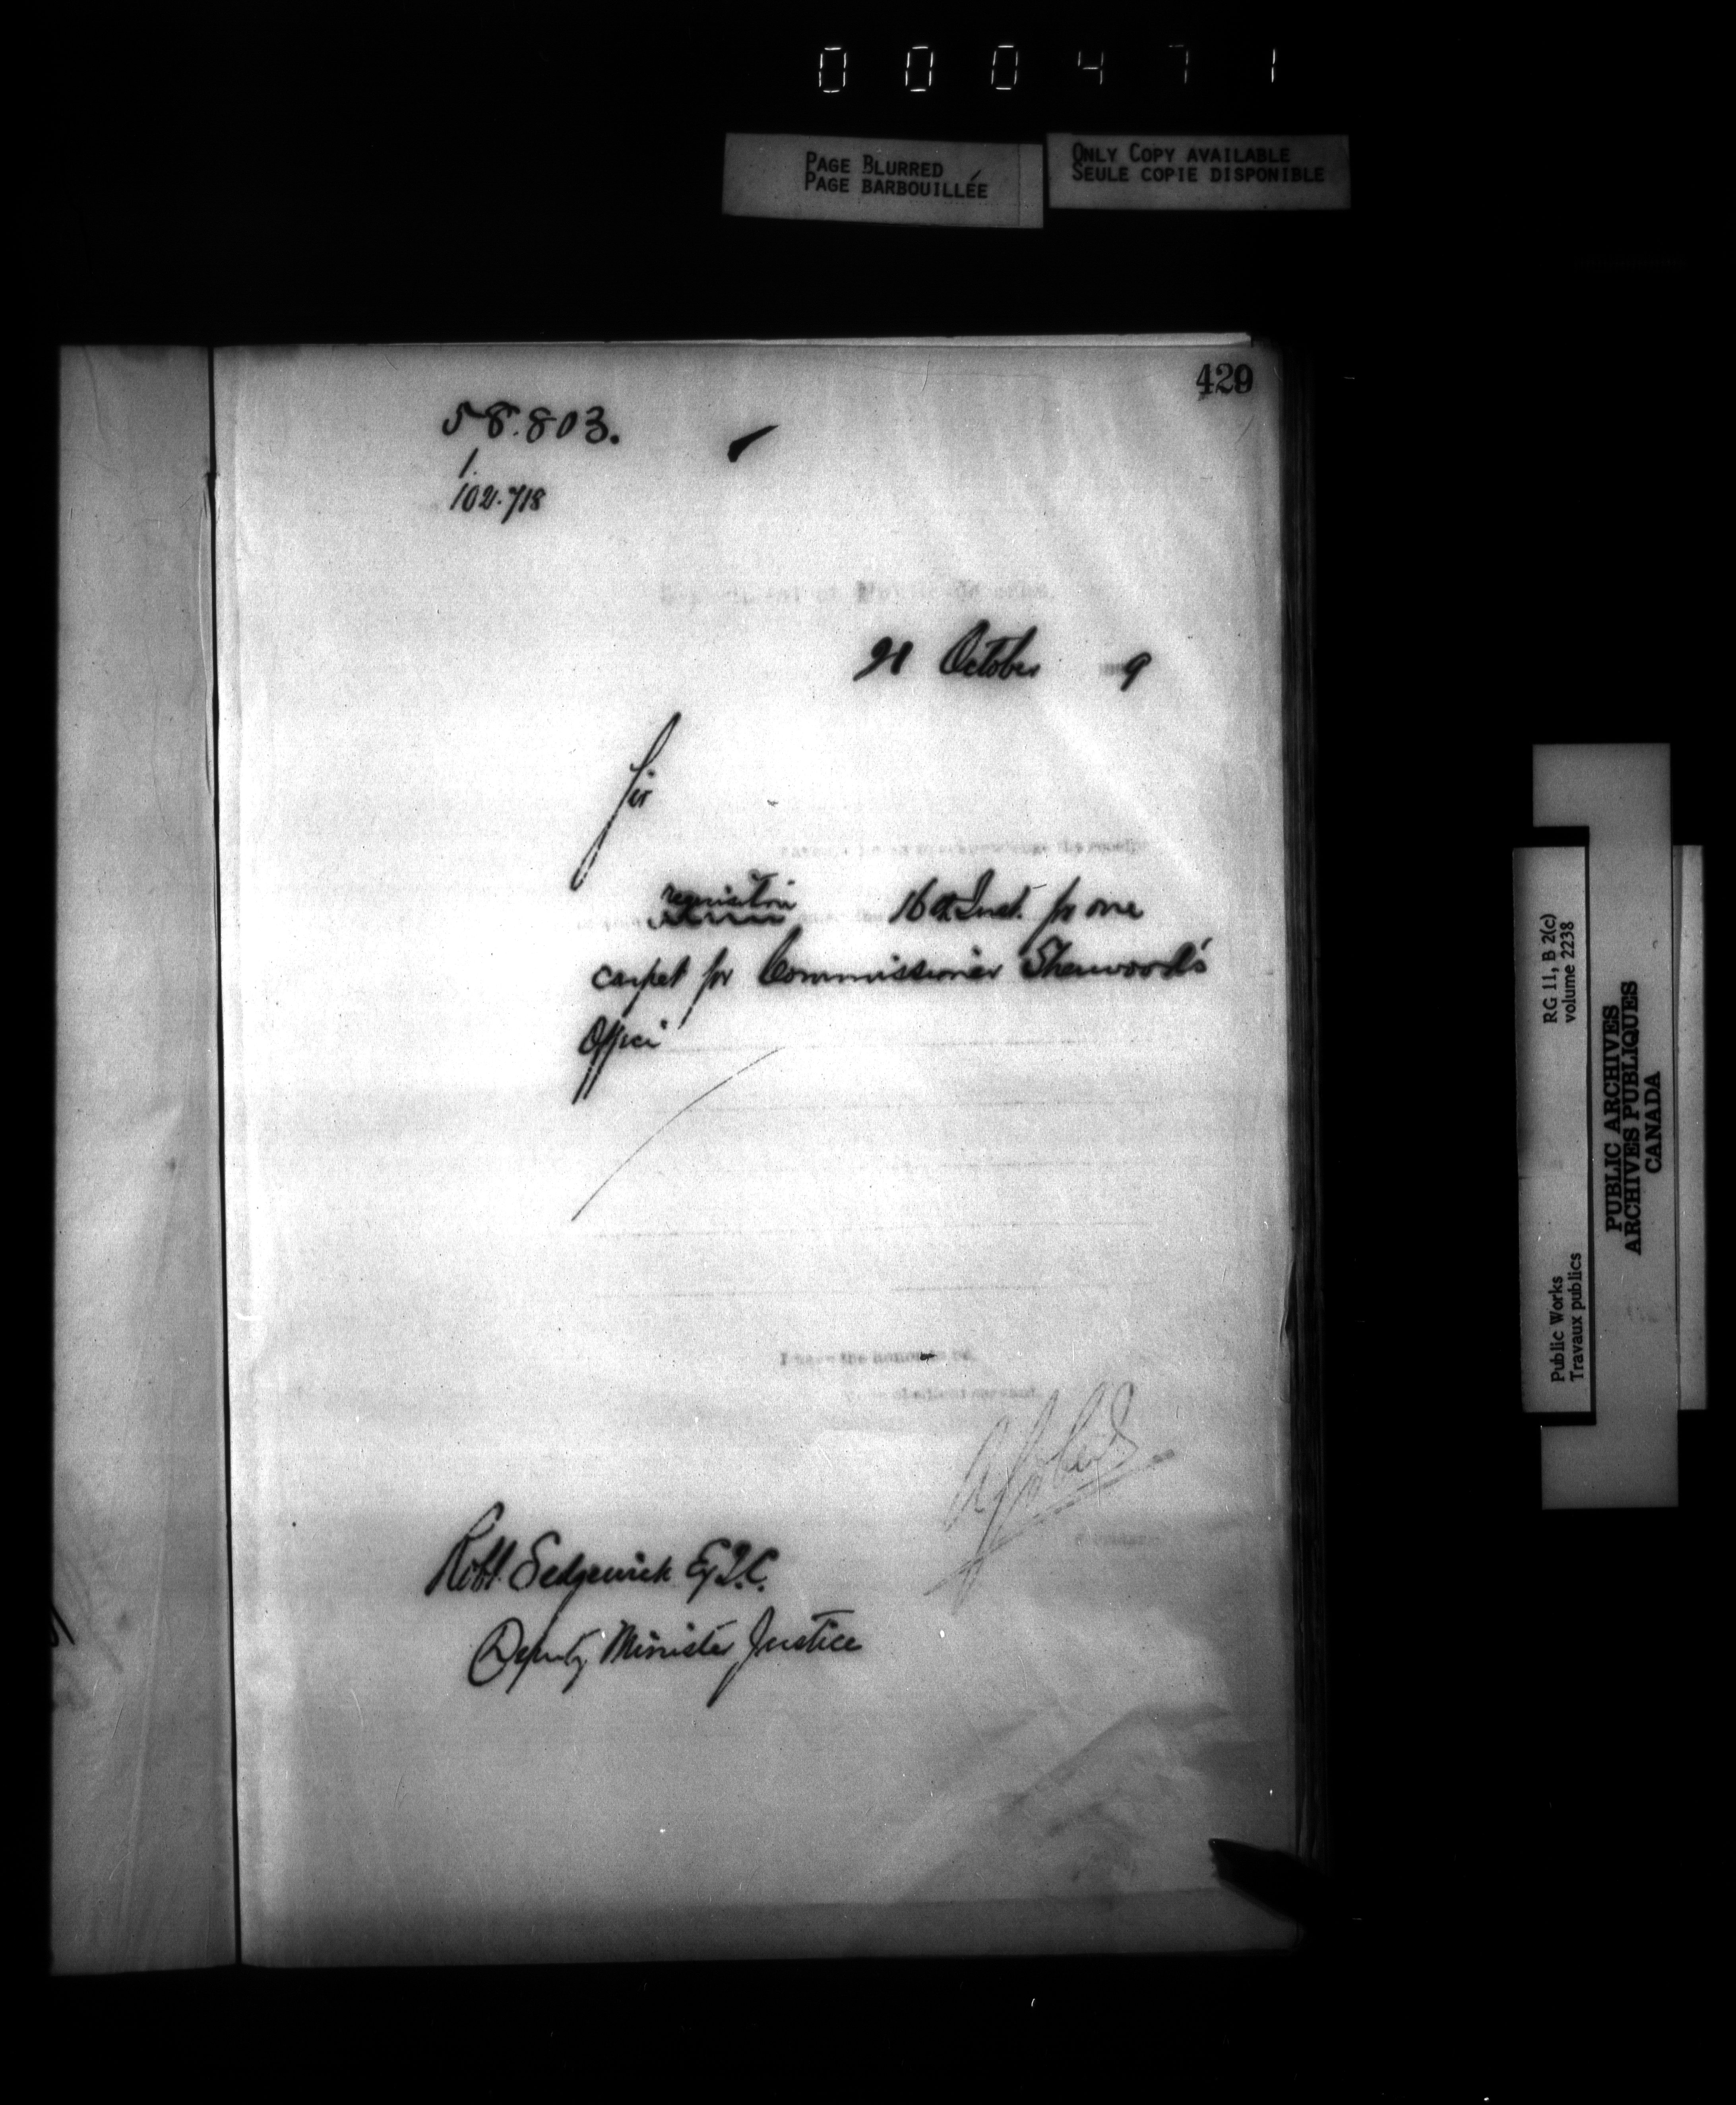 000471
PAGE BLURRED
PAGE BARBOUILLÉE
ONLY COPY AVAILABLE
SEULE COPIE DISPONIBLE
429
58.803.
1.
102.718
21 October 9
Sir
to acknowledge the receipt
requisition 16th Inst. for one
carpet for Commissioner Sherwood's
Office
I have the honour to be,
obedient servant,
Robt. Sedgewick Esq Q.C.
Deputy Minister Justice
RG 11, B 2(c)
volume 2238
Public Works
Travaux publics
PUBLIC ARCHIVES
ARCHIVES PUBLIQUES
CANADA